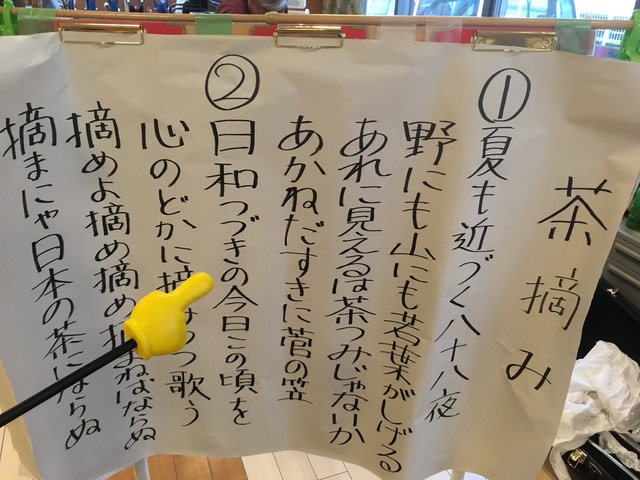 茶摘み
①夏も近づく八十八夜
野にも山にも若葉がしげる
あれに見えるは茶つみじゃないか
あかねだすきに菅の笠
②日和つづきの今日この頃を
心のどかに摘 つつ歌う
摘めよ摘め摘め摘まねばならぬ
摘まにゃ日本の茶にならぬ